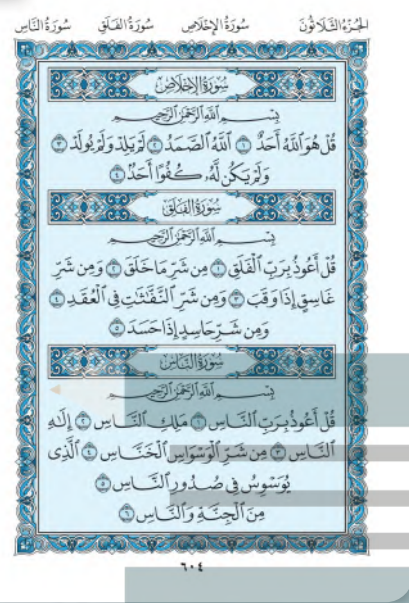 الجزء الثلاثون سورة الإخلاص سورة الفلق سورة الناس
سورة الإخلاص
بِسْمِ اللَّهِ الرَّحْمَٰنِ الرَّحِيمِ
قُلْ هُوَ اللَّهُ أَحَدٌ ١ اللَّهُ الصَّمَدُ ٢ لَمْ يَلِدْ وَلَمْ يُولَدْ ٣
وَلَمْ يَكُن لَّهُۥ كُفُوًا أَحَدٌۢ ٤
سورة الفلق
بِسْمِ اللَّهِ الرَّحْمَٰنِ الرَّحِيمِ
قُلْ أَعُوذُ بِرَبِّ الْفَلَقِ ١ مِن شَرِّ مَا خَلَقَ ٢ وَمِن شَرِّ
غَاسِقٍ إِذَا وَقَبَ ٣ وَمِن شَرِّ النَّفَّٰثَٰتِ فِي الْعُقَدِ ٤
وَمِن شَرِّ حَاسِدٍ إِذَا حَسَدَ ٥
سورة الناس
بِسْمِ اللَّهِ الرَّحْمَٰنِ الرَّحِيمِ
قُلْ أَعُوذُ بِرَبِّ النَّاسِ ١ مَلِكِ النَّاسِ ٢ إِلَٰهِ
النَّاسِ ٣ مِن شَرِّ الْوَسْوَاسِ الْخَنَّاسِ ٤ الَّذِي
يُوَسْوِسُ فِي صُدُورِ النَّاسِ ٥
مِنَ الْجِنَّةِ وَالنَّاسِ ٦
٦٠٤